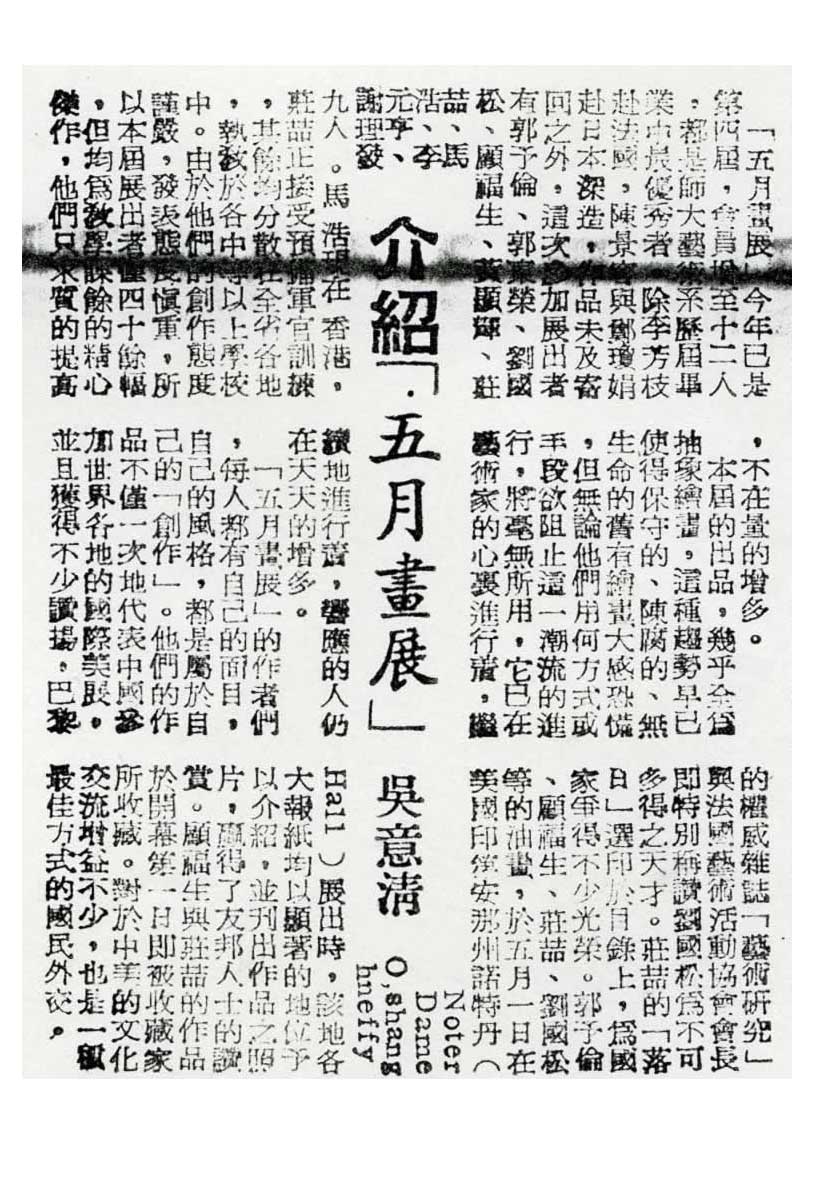 介紹「五月畫展」
吳意淸
「五月畫展」今年已是
第四屆，會員增至十二人
，都是師大藝術系歷屆畢
業中最優秀者 除李芳枝
赴法國，陳景容與鄭瓊娟
赴日本深造，作品未及寄
回之外，這次參加展出者
有郭予倫、郭東榮、劉國
松、顧福生、黃顯輝、莊
喆、馬
浩、李
元亨、
謝理發
九人。馬浩現在香港，
莊喆正接受預備軍官訓練
，其餘均分散在全省各地
，執教於各中等以上學校
中。由於他們的創作態度
謹嚴，發表態度愼重，所
以本屆展出者僅四十餘幅
，但均爲教學課餘的精心
傑作，他們只求質的提高
，不在量的增多。
本屆的出品，幾乎全爲
抽象繪畫，這種趨勢早已
使得保守的、陳腐的、無
生命的舊有繪畫大感恐慌
，但無論他們用何方式或
手段欲阻止這一潮流的進
行，將毫無所用，它已在
藝術家的心裏進行着，繼
續地進行着，響應的人仍
在天天的增多。
「五月畫展」的作者們
，每人都有自己的面目，
自己的風格，都是屬於自
己的「創作」。他們的作
品不僅一次地代表中國參
加世界各地的國際美展，
並且獲得不少讚揚，巴黎
的權威雜誌「藝術研究」
與法國藝術活動協會會長
即特別稱讚劉國松爲不可
多得之天才。莊喆的「落
日」選印於目錄上，爲國
家爭得不少光榮。郭予倫
、顧福生、莊喆、劉國松
等的油畫，於五月一日在
美國印第安那州諾特丹（
Noter
Dame
O,shang
hneffy
Hall）展出時，該地各
大報紙均以顯著的地位予
以介紹，並刊出作品之照
片，贏得了友邦人士的讚
賞。顧福生與莊喆的作品
於開幕第一日即被收藏家
所收藏。對於中美的文化
交流增益不少，也是一種
最佳方式的國民外交。